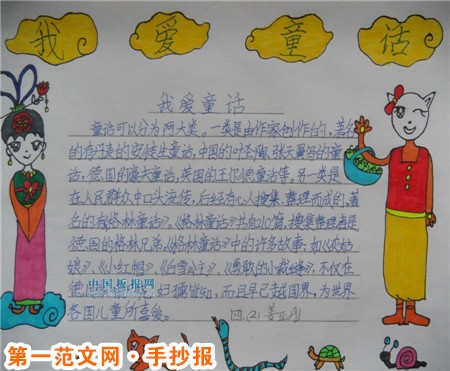 我 爱 童 话
我爱童话
童话可以分为两大类。一类是由作家创作的,著名
的有丹麦的安徒生童话,中国的叶圣陶、张天翼写的童
话,德国的豪夫童话,英国的王尔德童话等。另一类是
在人民群众中口头流传,后经有心人搜集、整理而成的,著
名的有《格林童话》。《格林童话》共有 搜集整理者是
德国的格林兄弟。《格林童话》中的许多故事,如《灰姑
娘》、《小红帽》、《白雪公主》、《勇敢的小裁缝》,不仅在
德国 妇孺皆知,而且早已越国界,为世界
各国儿童所喜爱。 四.(2)
中国板报网
第一范文网·手抄报